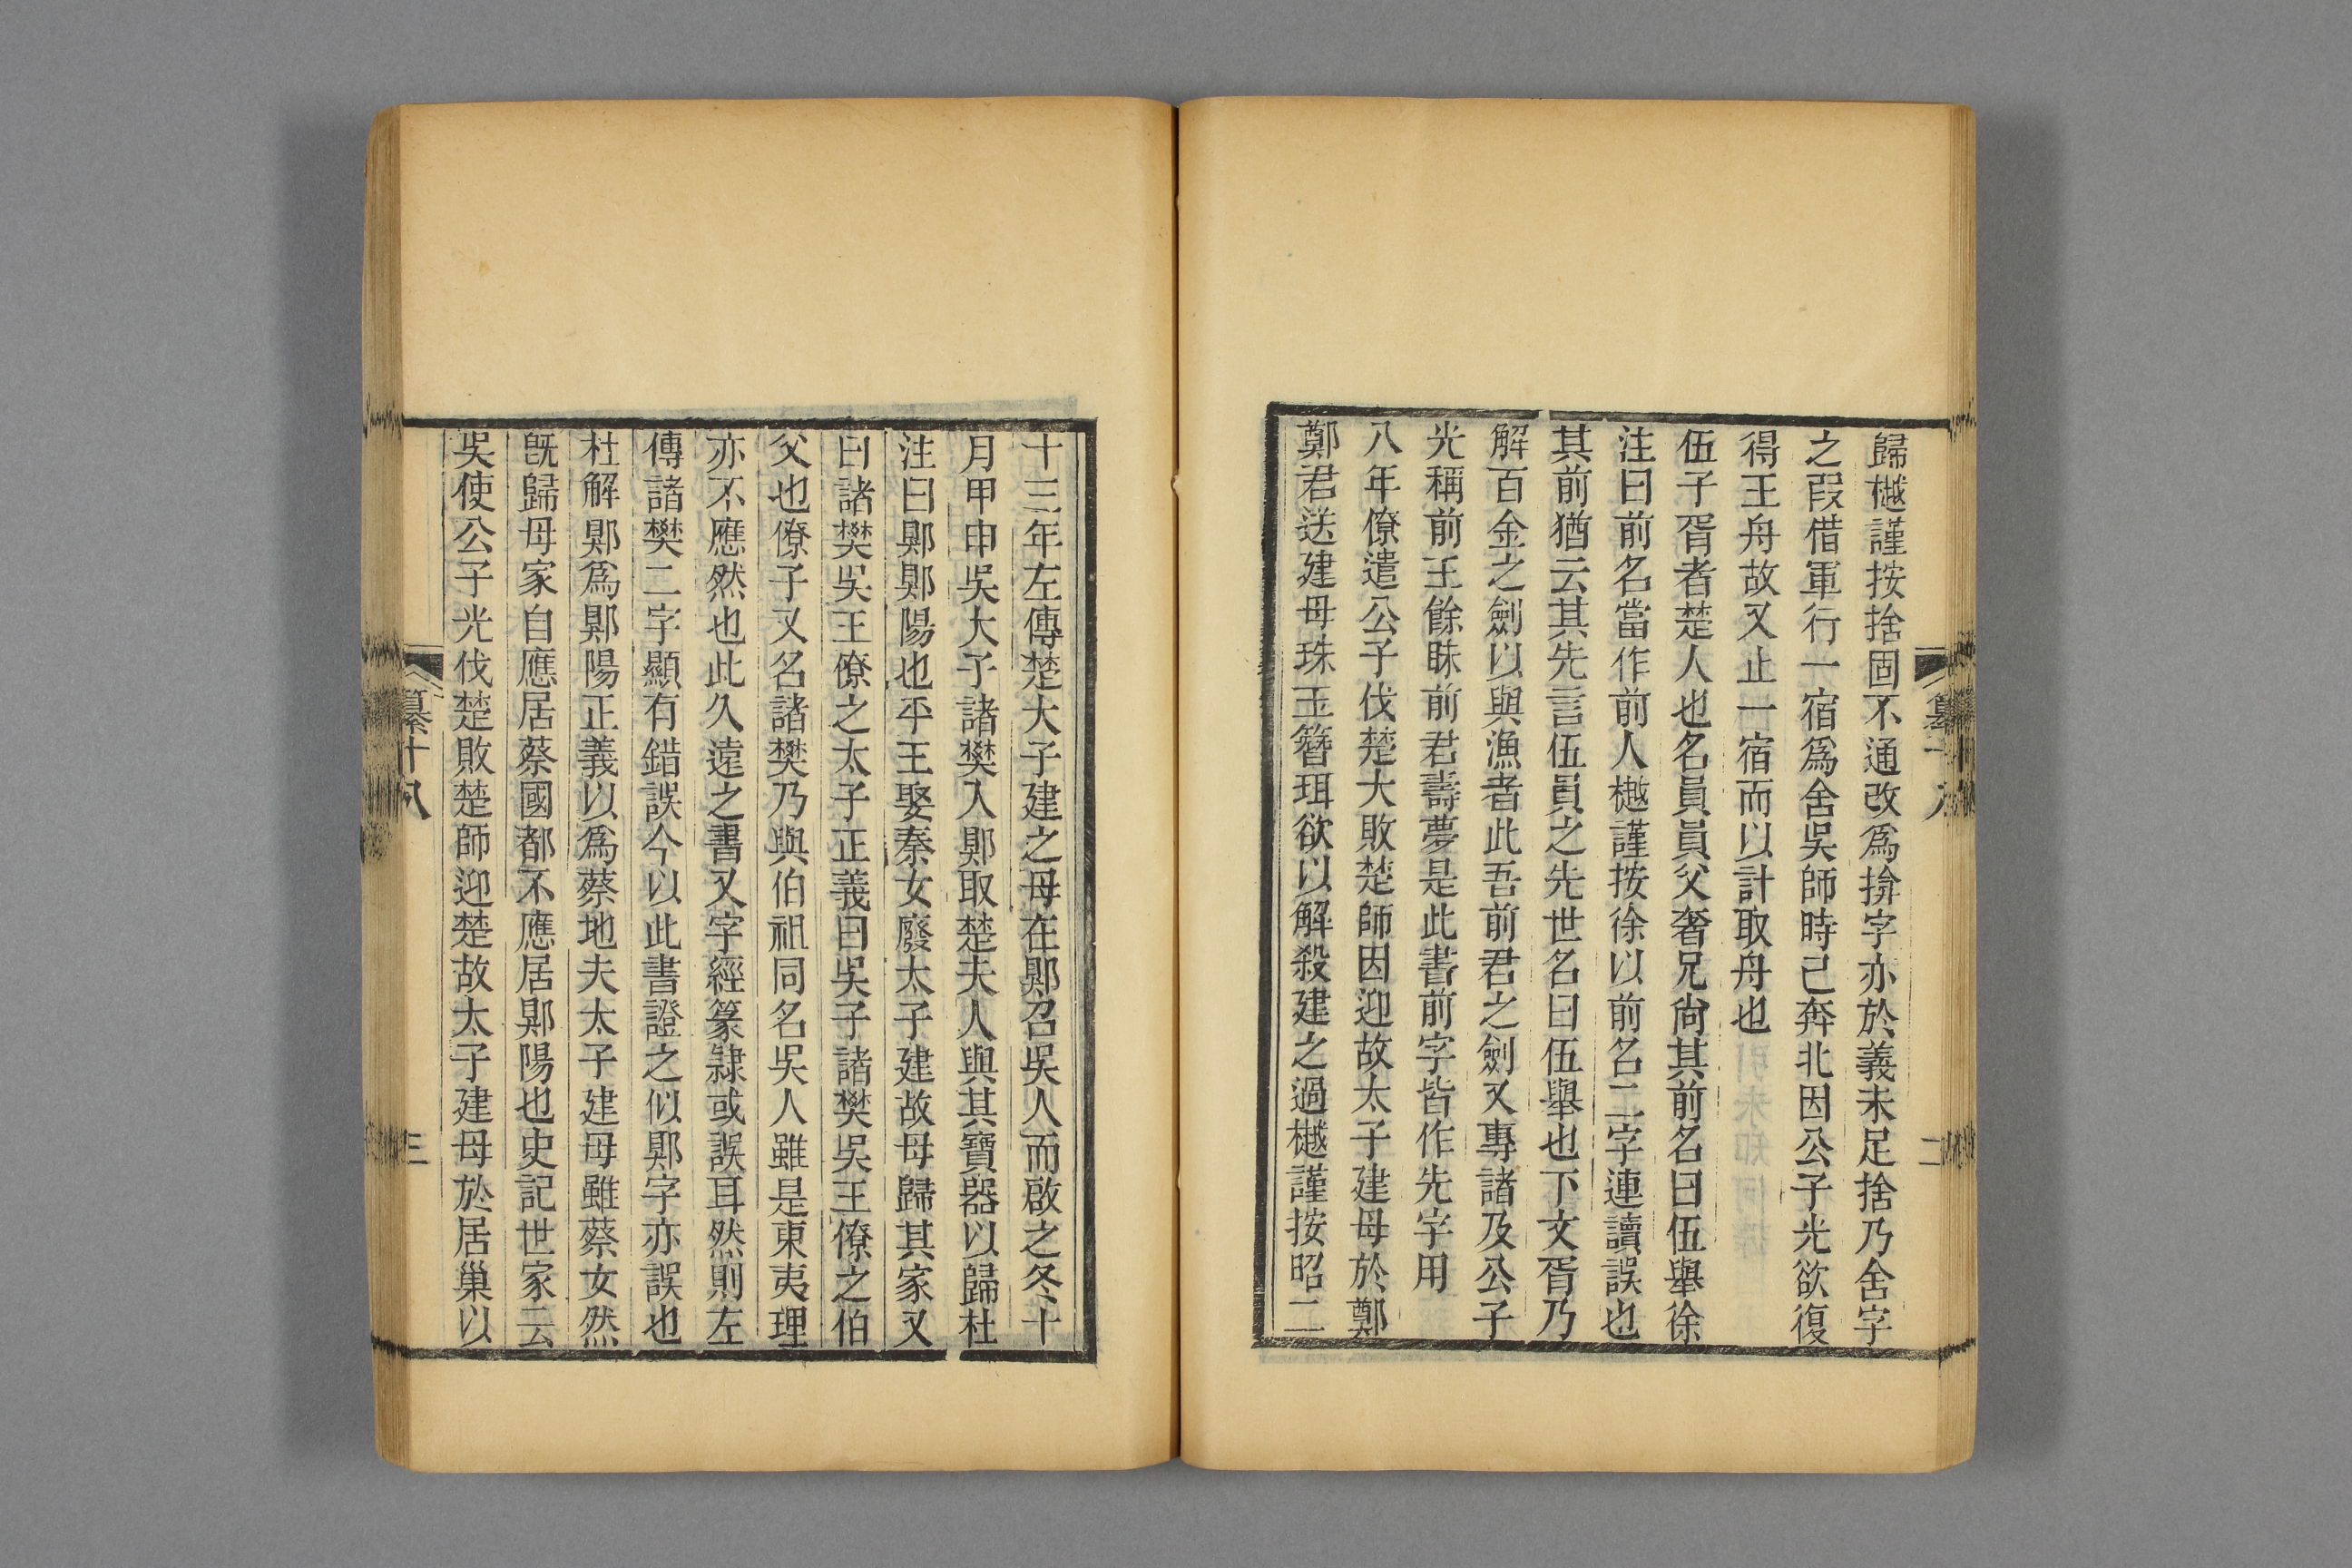 歸樾謹按捨固不通改爲揜字亦於義未足捨乃舍字
之叚借軍行一宿爲舍吳師時已奔北因公子光欲復
得王舟故又止一宿而以計取舟也
伍子胥者楚人也名員員父奢兄尙其前名曰伍舉徐
注曰前名當作前人樾謹按徐以前名二字連讀誤也
其前猶云其先言伍員之先世名曰伍舉也下文胥乃
解百金之劍以與漁者此吾前君之劍又專諸及公子
光稱前王餘眛前君壽夢是此書前字皆作先字用
八年僚遣公子伐楚大敗楚師因迎故太子建母於鄭
鄭君送建母珠玉簪珥欲以解殺建之過樾謹按昭二
纂十八
二
十三年左傳楚大子建之母在郹召吳人而啟之冬十
月甲申吳大子諸樊入郹取楚夫人與其寶器以歸杜
注曰郹郹陽也平王娶秦女廢太子建故母歸其家又
曰諸樊吳王僚之太子正義曰吳子諸樊吳王僚之伯
父也僚子又名諸樊乃與伯祖同名吳人雖是東夷理
亦不應然也此久遠之書又字經篆隸或誤耳然則左
傳諸樊二字顯有錯誤今以此書證之似郹字亦誤也
杜解郹爲郹陽正義以爲蔡地夫太子建母雖蔡女然
旣歸母家自應居蔡國都不應居郹陽也史記世家云
吳使公子光伐楚敗楚師迎楚故太子建母於居巢以
纂十八
三